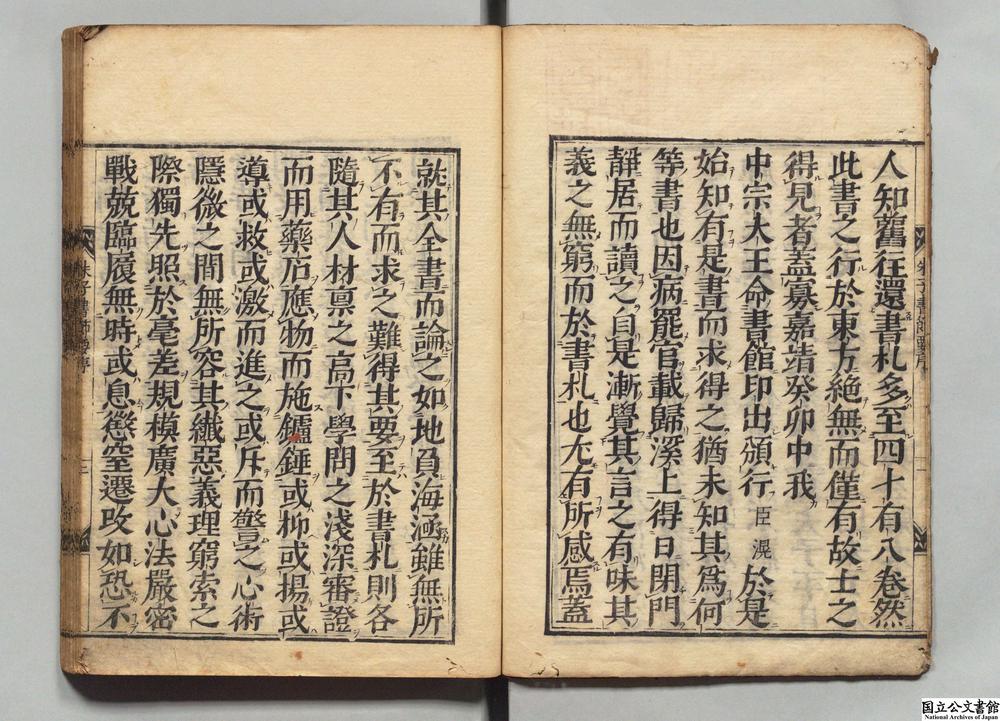 人知舊往還書札多至四十有八卷然
此書之行於東方絶無而僅有故士之
得見者蓋寡嘉靖癸卯中我
中宗大王命書館印出頒行臣滉於是
始知有是書而求得之猶未知其爲何
等書也因病罷官載歸溪上得日閉門
靜居而讀之自是漸覺其言之有味其
義之無窮而於書札也尤有所感焉蓋
就其全書而論之如地負海涵雖無所
不有而求之難得其要至於書札則各
隨其人材稟之高下學問之淺深審證
而用藥石應物而施鑪錘或抑或揚或
導或救或激而進之或斥而警之心術
隱微之間無所容其纖惡義理窮索之
際獨先照於毫差規模廣大心法嚴密
戰兢臨履無時或息懲窒遷改如恐不
国立公文書館
National Archives of Japan